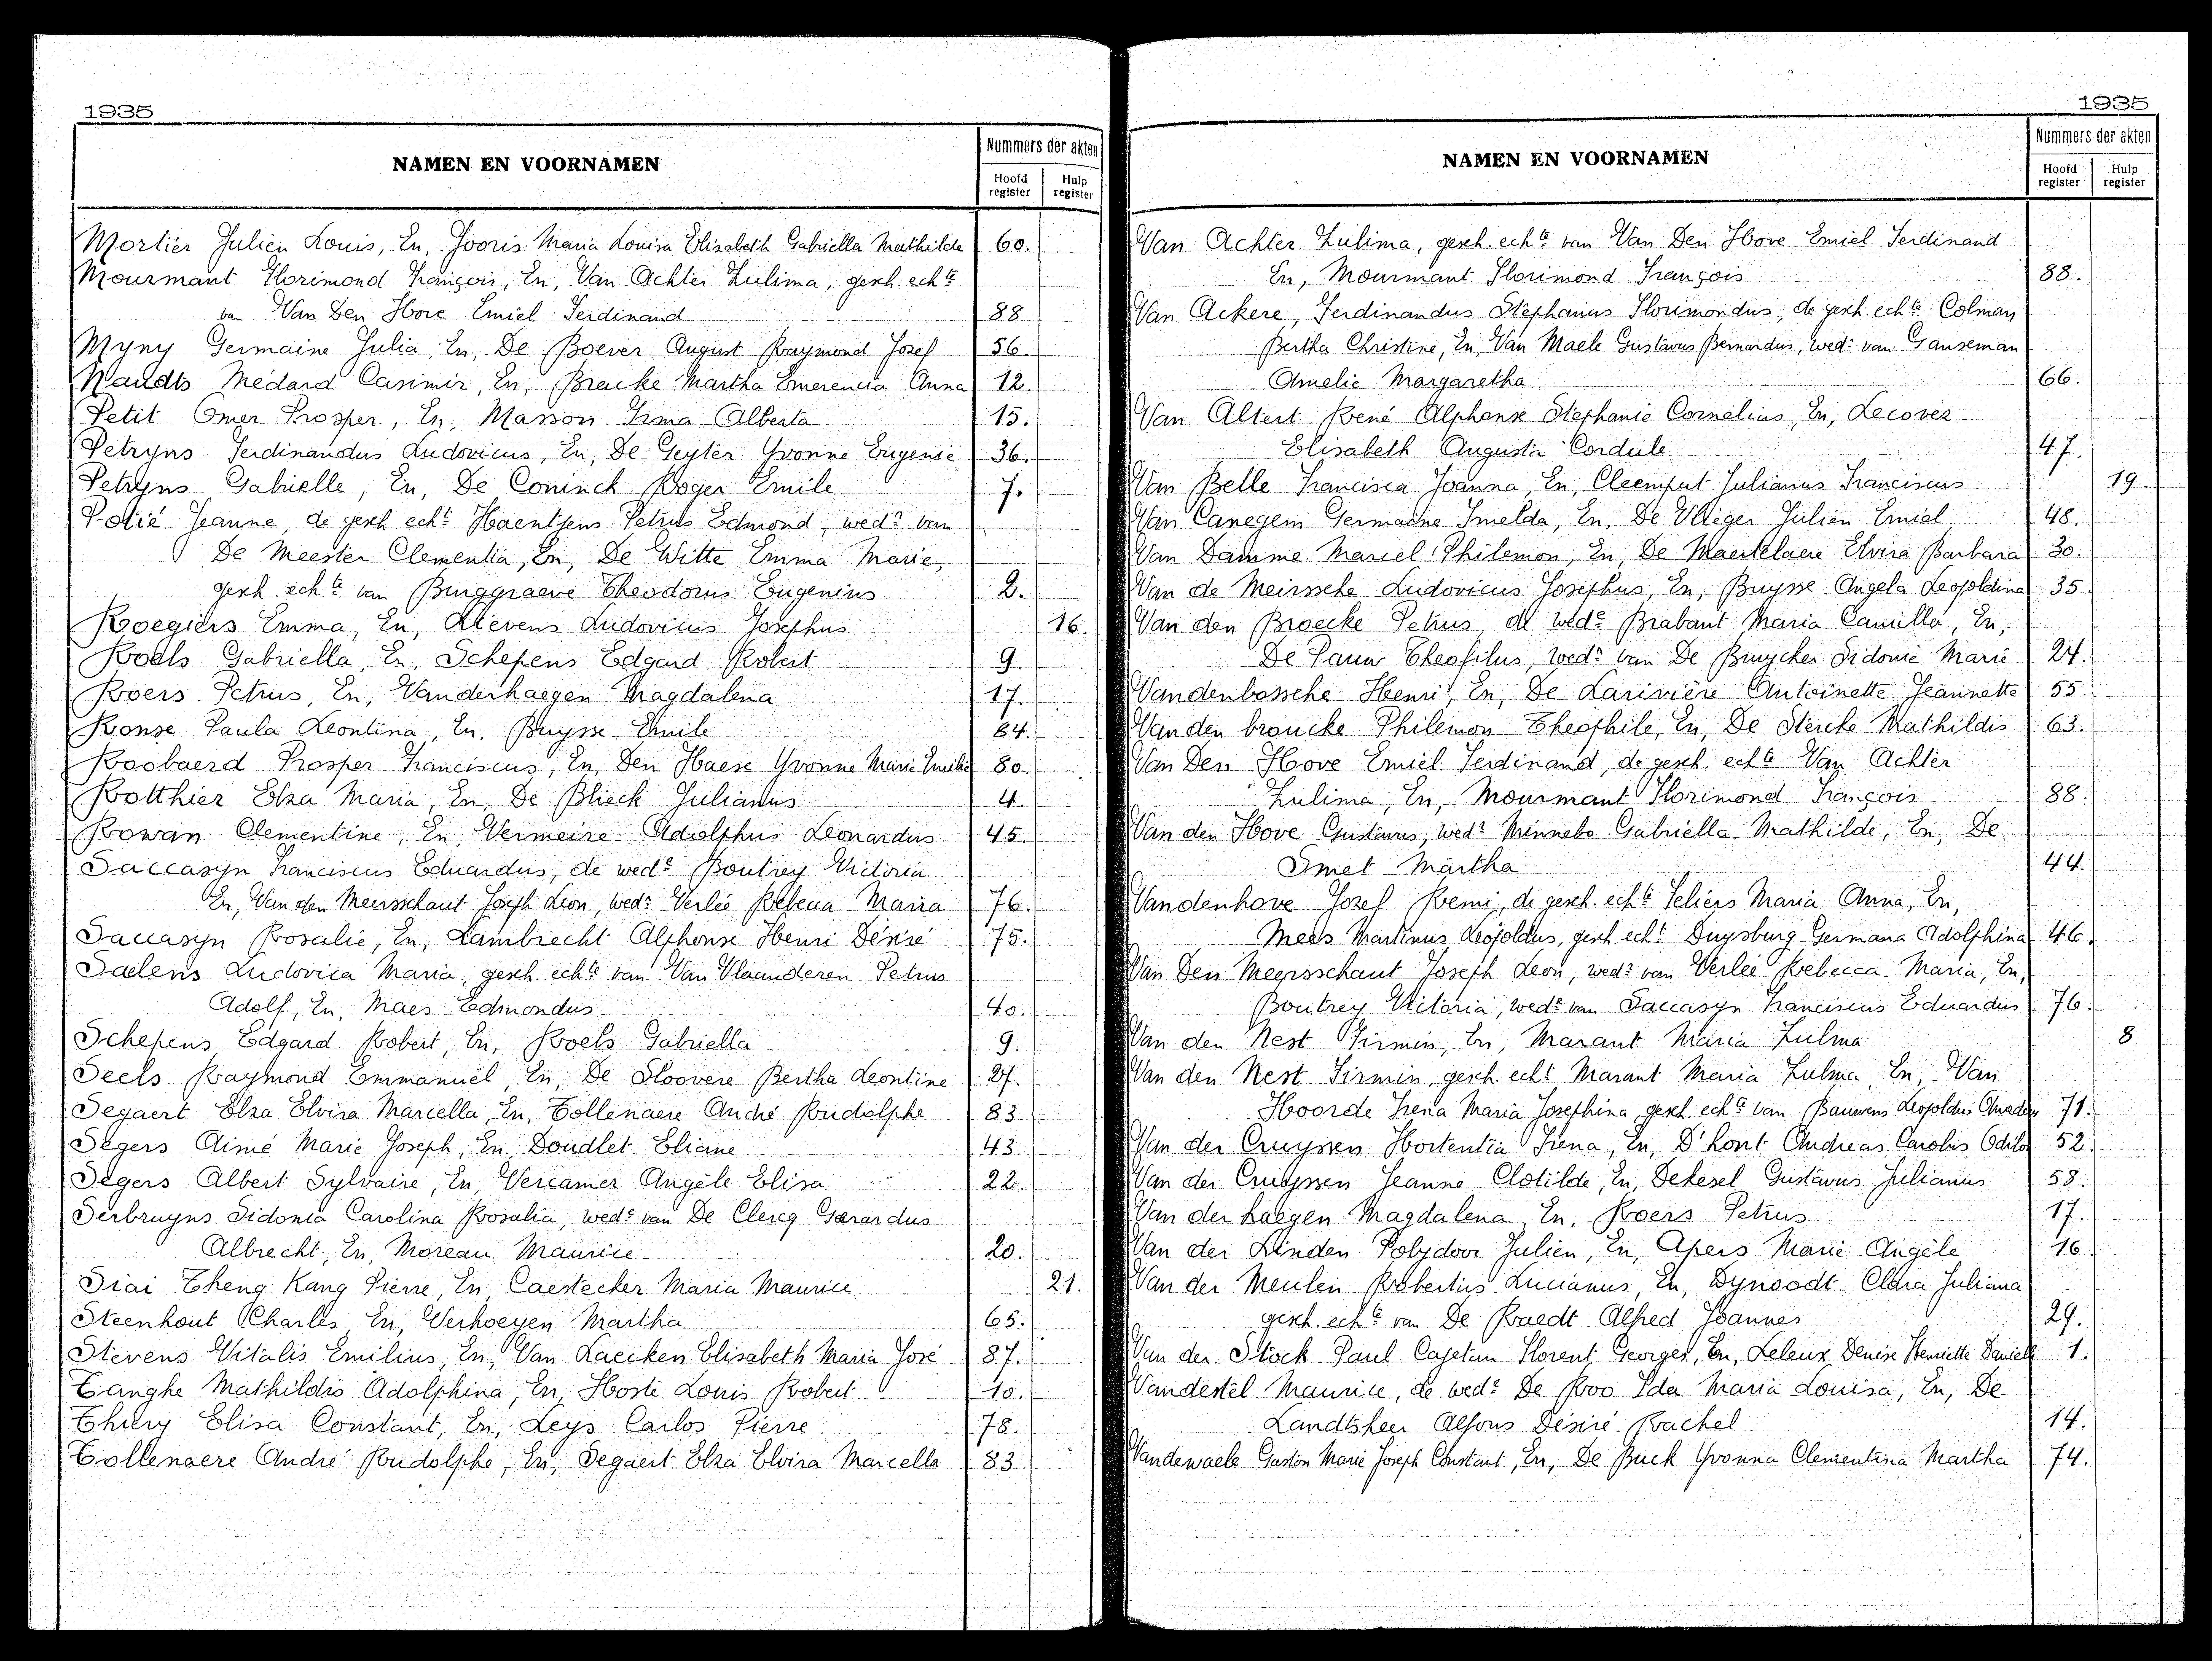 1935
NAMEN EN VOORNAMEN
Nummers der akten
Hoofd register
Hulp register
Mortier Julien Louis, En, Jooris Maria Louisa Elisabeth Gabriella Mathilde 60.
Mourmant Florimond François, En, Van Achter Zulima, gesch. echte
van Van Den Hove Emiel Ferdinand 88.
Myny Germaine Julia, En, De Boever August Raymond Jozef 56.
Naudts Médard Casimir, En, Bracke Martha Emerencia Anna 12.
Petit Omer Prosper, En, Masson Irma Alberta 15.
Petryns Ferdinandus Ludovicus, En, De Geyter Yvonne Eugenie 36.
Petryns Gabrielle, En, De Coninck Roger Emile 7.
Potié Jeanne, de gesch. echt Haentjens Petrus Edmond, wedr van
De Meester Clementia, En, De Witte Emma Marie,
gesch. echte van Burggraeve Theodorus Eugenius 2.
Roegiers Emma, En, Lievens Ludovicus Josephus 16.
Roels Gabriella, En, Schepens Edgard Robert 9.
Roers Petrus, En, Vanderhaegen Magdalena 17.
Ronse Paula Leontina, En, Buysse Emile 84.
Roobaerd Prosper Franciscus, En, Den Haese Yvonne Marie Emilie 80.
Rotthier Elza Maria, En, De Blieck Julianus 4.
Rowan Clementine, En, Vermeire Adolphus Leonardus 45.
Saccasyn Franciscus Eduardus, de wede Boutrey Victoria
En, Van den Meersschaut Joseph Leon, wedr Verlée Rebecca Maria 76.
Saccasyn Rosalie, En, Lambrecht Alphonse Henri Désiré 75.
Saelens Ludovica Maria, gesch. echte van Van Vlaanderen Petrus
Adolf, En, Maes Edmondus 40.
Schepens Edgard Robert, En, Roels Gabriella 9.
Seels Raymond Emmanuël, En, De Sloovere Bertha Leontine 27.
Segaert Elza Elvira Marcella, En, Tollenaere André Rudolphe 83.
Segers Aimé Marie Joseph, En, Doudlet Eliane 43.
Segers Albert Sylvaire, En, Vercamer Angèle Elisa 22.
Serbruyns Sidonia Carolina Rosalia, wede van De Clercq Gerardus
Albrecht, En, Moreau Maurice 20.
Siai Theng Kang Pierre, En, Caestecker Maria Maurice 21.
Steenhout Charles, En, Verhoeyen Martha 65.
Stevens Vitalis Emilius, En, Van Laecken Elisabeth Maria José 87.
Tanghe Mathildis Adolphina, En, Hoste Louis Robert 10.
Thiery Elisa Constant, En, Leys Carlos Pierre 78.
Tollenaere André Rudolphe, En, Segaert Elza Elvira Marcella 83.
1935
NAMEN EN VOORNAMEN
Nummers der akten
Hoofd register
Hulp register
Van Achter Zulima, gesch. echte van Van Den Hove Emiel Ferdinand
En, Mourmant Florimond François 88.
Van Ackere, Ferdinandus Stephanus Florimondus, de gesch. echte Colman
Bertha Christine, En, Van Maele Gustavus Bernardus, wedr van Ganseman
Amelie Margaretha 66.
Van Altert René Alphonse Stephanie Cornelius, En, Lecovez
Elisabeth Augusta Cordule 47.
Van Belle Francisca Joanna, En, Cleemput Julianus Franciscus 19.
Van Canegem Germaine Imelda, En, De Vlieger Julien Emiel 48.
Van Damme Marcel Philemon, En, De Maertelaere Elvira Barbara 30.
Van de Meirssche Ludovicus Josephus, En, Buysse Angela Leopoldina 35.
Van den Broecke Petrus, de wede Brabant Maria Camilla, En,
De Pauw Theofilus, wedr van De Bruycker Sidonie Marie 24.
Vandenbossche Henri, En, De Larivière Antoinette Jeannette 55.
Van den broucke Philemon Theophile, En, De Stercke Mathildis 63.
Van Den Hove Emiel Ferdinand, de gesch. echte Van Achter
Zulima, En, Mourmant Florimond François 88.
Van den Hove Gustavus, wedr Minnebo Gabriella Mathilde, En, De
Smet Martha 44.
Vandenhove Jozef Remi, de gesch. echte Seliers Maria Anna, En,
Mees Martinus Leopoldus, gesch. echt Duysburg Germana Adolphina 46.
Van Den Meersschaut Joseph Leon, wedr van Verlée Rebecca Maria, En,
Boutrey Victoria, wede van Saccasyn Franciscus Eduardus 76.
Van den Nest Firmin, En, Marant Maria Zulma 8
Van den Nest Firmin, gesch. echt Marant Maria Zulma, En, Van
Hoorde Irena Maria Josephina, gesch. echte van Bauwens Leopoldus Amadeus 71.
Van der Cruyssen Hortentia Irena, En, D'hont Andreas Carolus Odilon 52.
Van der Cruyssen Jeanne Clotilde, En, Dekesel Gustavus Julianus 58.
Van der haegen Magdalena, En, Roers Petrus 17.
Van der Linden Polydoor Julien, En, Apers Marie Angèle 16
Van der Meulen Robertus Lucianus, En, Dynoodt Clara Juliana
gesch. echte van De Raedt Alfred Joannes 29.
Van der Stock Paul Cajetan Florent Georges, En, Leleux Denise Henriette Danielle 1.
Vandestel Maurice, de wede De Roo Ida Maria Louisa, En, De
Landtsheer Alfons Désiré Rachel 14.
Vandewaele Gaston Marie Joseph Constant, En, De Buck Yvonna Clementina Martha 74.